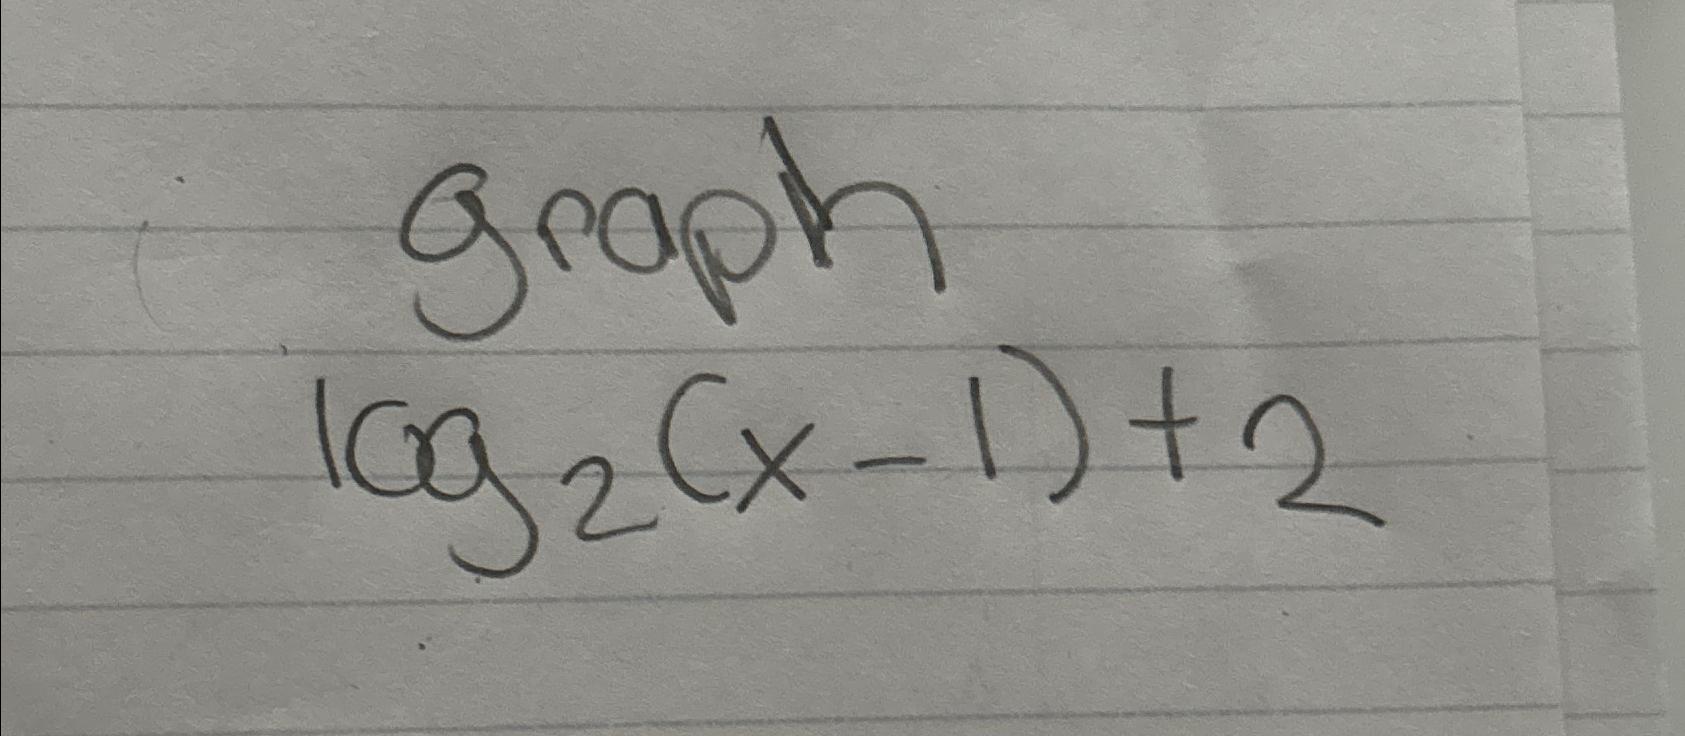 graph
log₂(x-1)+2